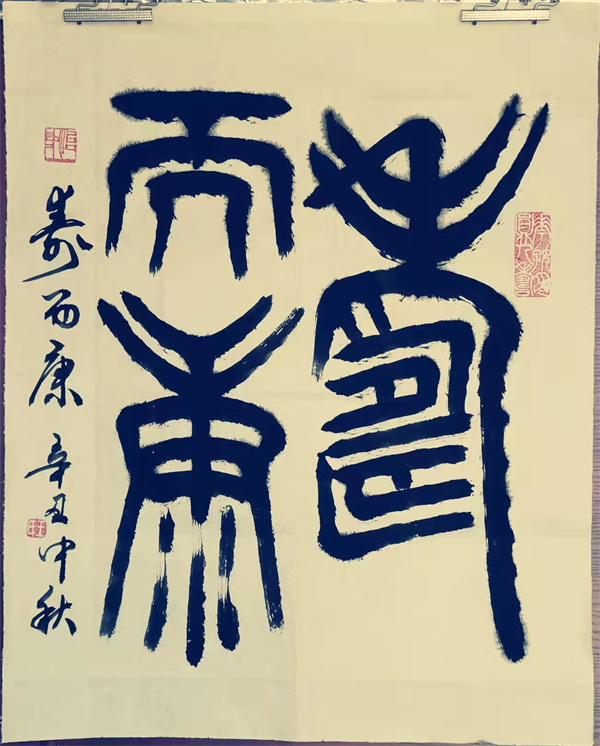 壽
而康
寿而康 辛丑中秋